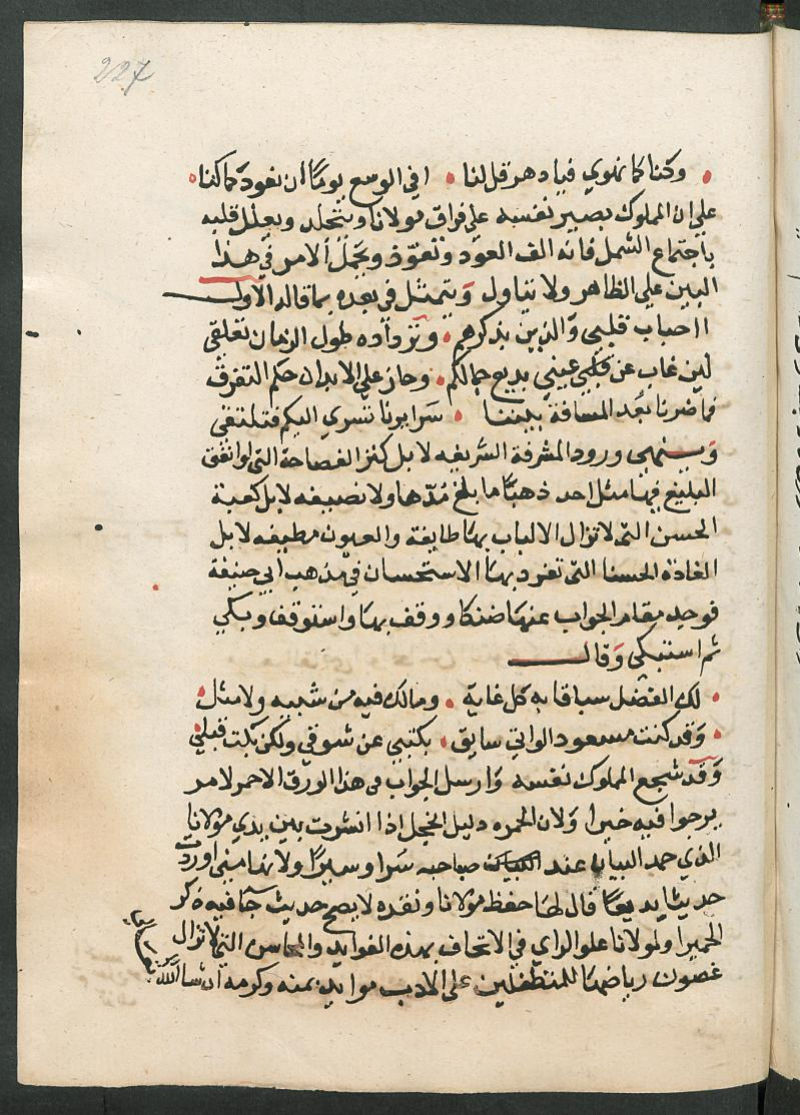 227
وكنا كما نهوي فيا دهر قل لنا • افي الوسع يوما ان نعود كما كنا
علي ان المملوك يصبر نفسه علي فراق مولانا ويتجلد ويعلل قلبه
باجتماع الشمل فانه الف العود وتعوذ ويحمل الامر في هذا
البين علي الظاهر ولا يتاول ويتمثل في بعده بما قاله الاول
ااحباب قلبي والذين بذكرهم • وتزداده طول الزمان تعلقي
لين غاب عن عيني بديع جمالكم • وحاز علي الابدان حكم التفرق
فما ضرنا بعد المسافة بيننا • سرايرنا تسري اليكم فتلتقي
وينهي ورود المشرفة الشريفه لا بل كنز الفصاحة التي لو انفق
البليغ فيها مثل احد ذهبا ما بلغ مدها ولا نصيفه لا بل كعبة
الحسن التي لا تزال الالباب بها طايفة والعيون مطيفه لا بل
الغادة الحسنا التي تفرد بها الاستحسان في مذهب ابي حنيفة
فوجد مقام الجواب عنها ضنكا ووقف بها واستوقف وبكي
ثم استبكي وقال
• لك الفضل سباقا به كل غاية • ومالك فيه من شبيه ولا مثل •
• وقد كنت مسعود الواتي سابق • بكتبي عن شوقي ولكن بكت قبلي
وقد شجع المملوك نفسه وارسل الجواب في هذا الورق الاحمر لامر
يرجوا فيه خيرا ولان الحمره دليل الخجل اذا انشرت بين يدي مولانا
الذي حمد البيان عند صباحه سرا وسيرا ولانها متي اوردت
حديثا بديعا قال لها حفظ مولانا ونقده لا يصح حديث جا فيه ذكر
الحميرا ولمولانا علو الراي في الاتحاف بهذه الفوايد والمحاسن التي لا تزال
غصون رياضها للمتطفلين علي الادب موايد بمنه وكرمه ان شا الله